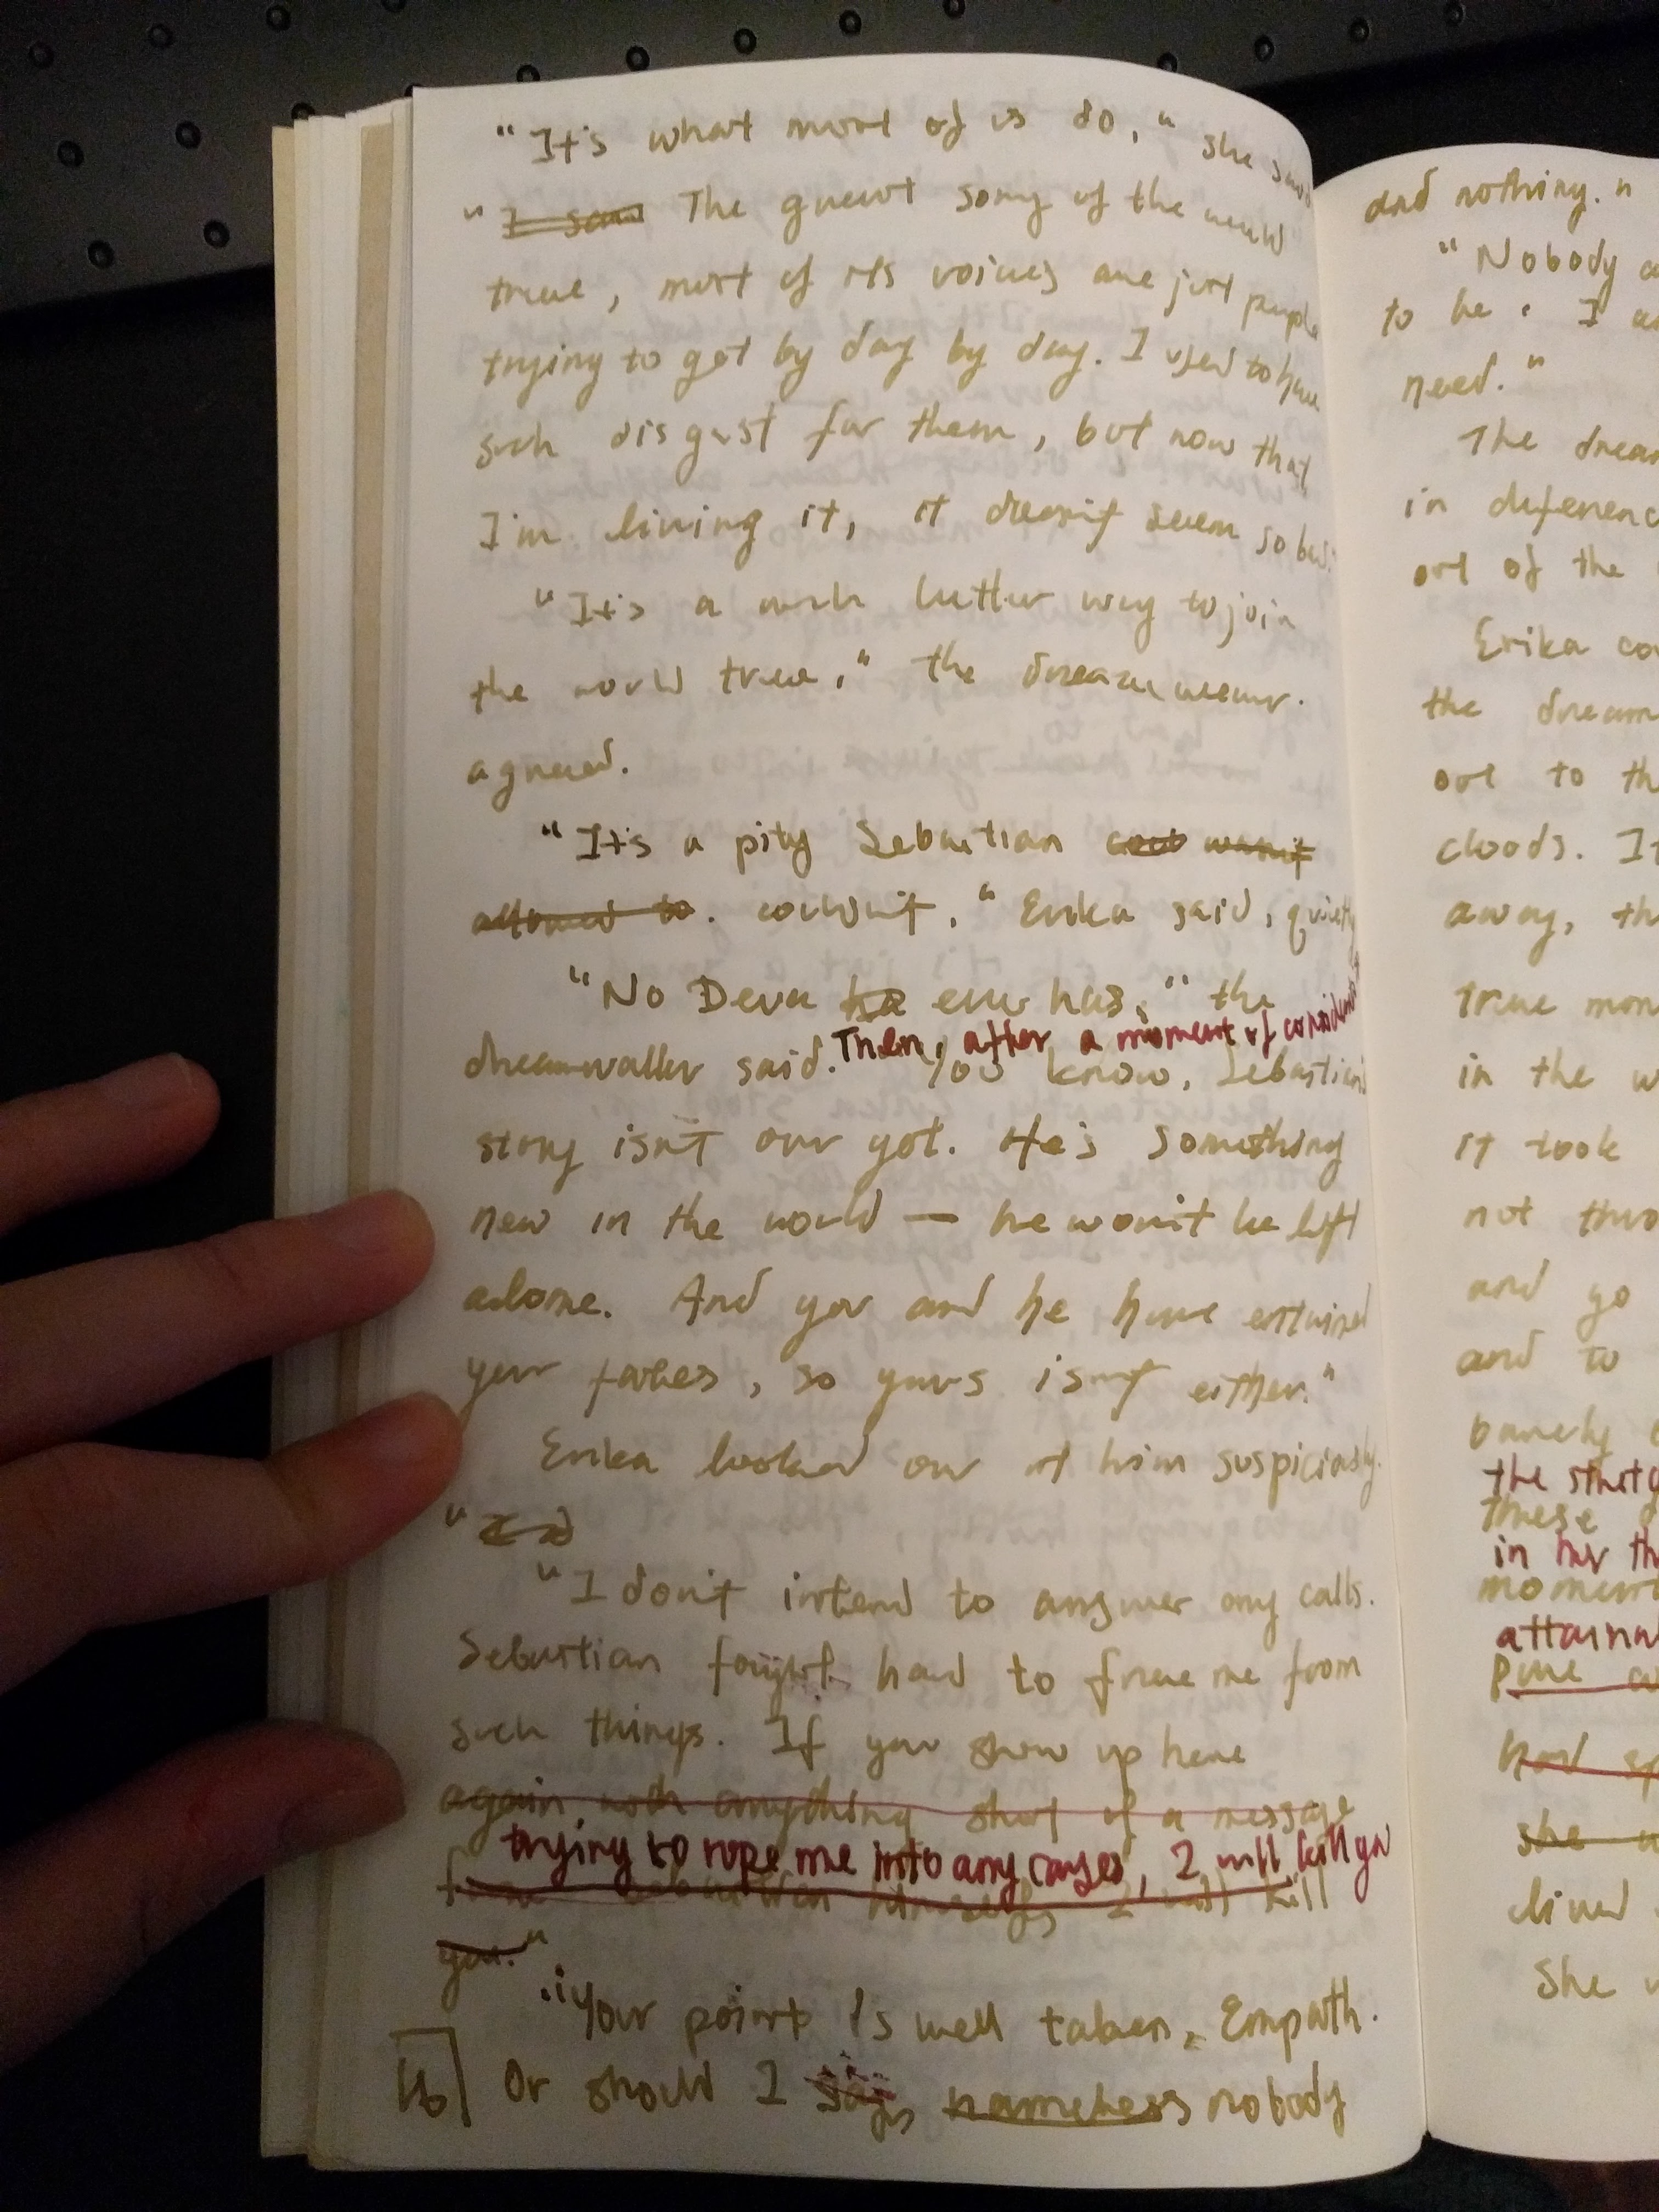 "It's what most of us do," she said
" I saw The great song of the world
tree, most of its voices are just people
trying to get by day by day. I used to have
such disgust for them, but now that
I'm living it, it doesn't seem so bad."
"It's a much better way to join
the world tree," the dreamweaver
agreed.
"It's a pity Sebastian wasn't
allowed to. couldn't," Erika said, quietly
"No Deva ha ever has," the
Then, after a moment of consideration
dreamwalker said. "You know, Sebastian's
story isn't over yet. He's something
new in the world — he won't be left
alone. And you and he have entwined
your fates, so yours isn't either."
Erika looked over at him suspiciously.
"
"I don't intend to answer any calls.
Sebastian fought hard to free me from
such things. If you show up here
again with anything short of a message
trying to rope me into any causes, I will kill you
from Sebastian himself, I will kill
you."
"Your point is well taken, Empath.
16 Or should I say nameless nobody
and nothing."
"Nobody
to be. I
need."
The
in
out of the
Erika
the
out to
clouds. It
away,
true
in the
it took
not
and go
and to
barely
the
these
in her
moment
pure
had
she
lived
She